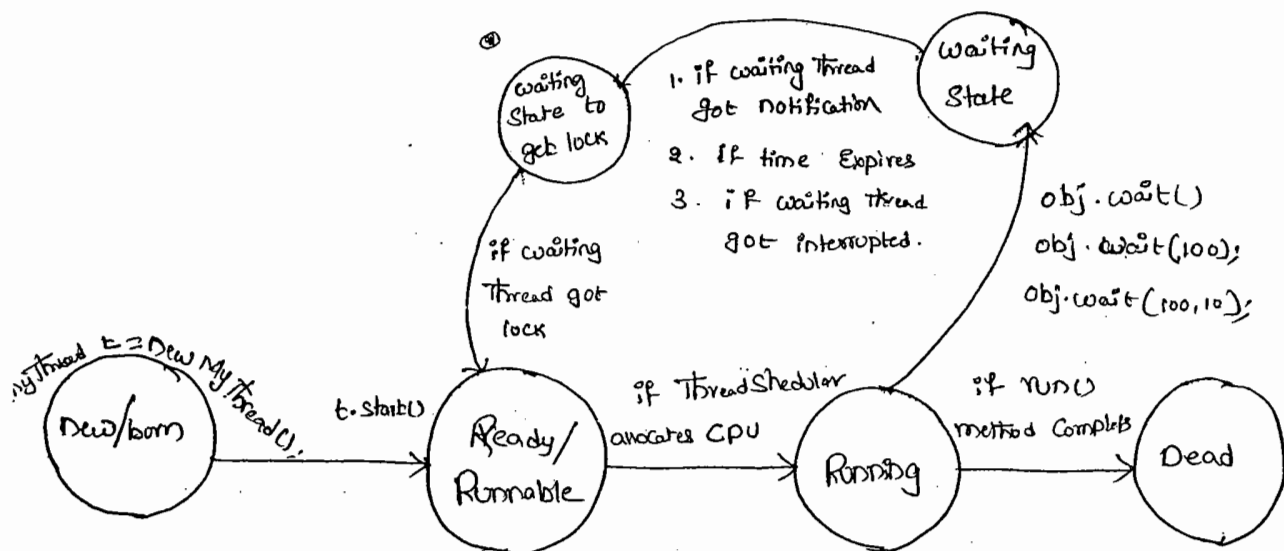 waiting
State to
get lock
1. if waiting Thread
got notification
2. If time Expires
3. if waiting Thread
got interrupted.
waiting
State
obj.wait()
obj.wait(100);
obj.wait(100,10);
if waiting
Thread got
lock
MyThread t = new MyThread();
New/born
t.start()
Ready/
Runnable
if ThreadShedular
allocates CPU
Running
if run()
method Complets
Dead